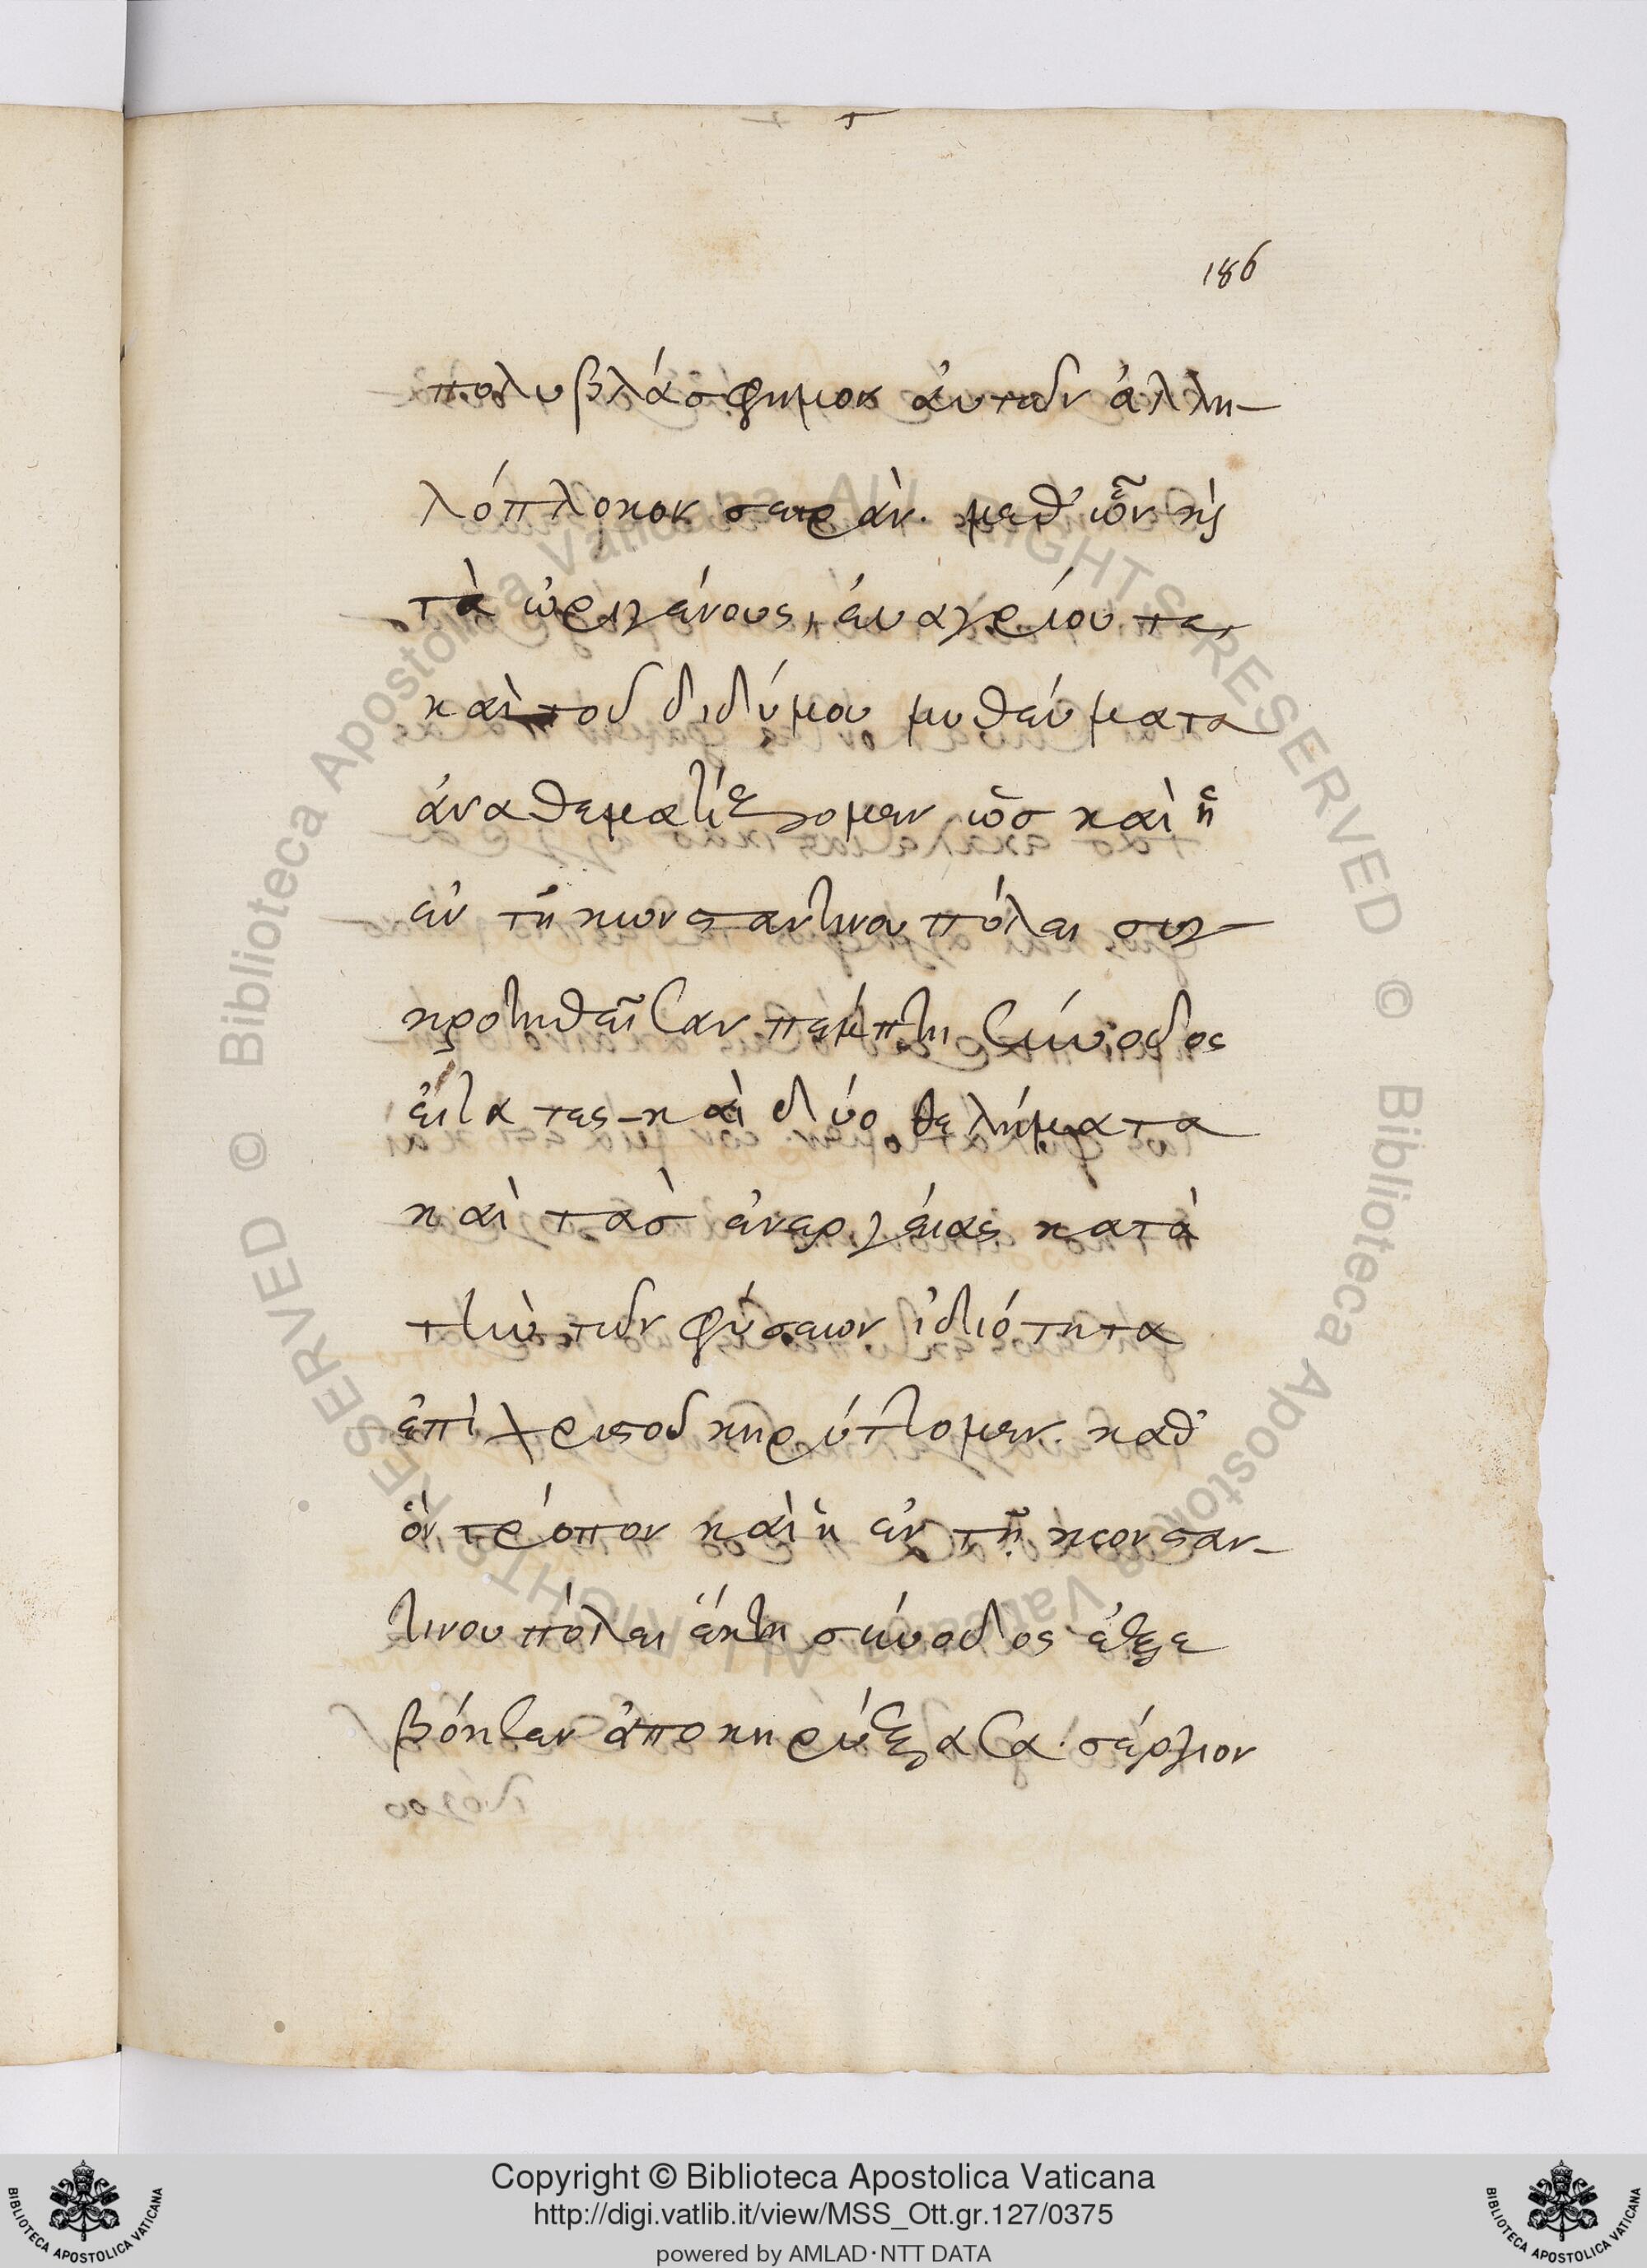 186
πολυβλάσφημον ἀυτῶν ἀλλη-
λόπλοκον σειρὰν. μεθ᾽ ὧν κὶ
τὰ ὠριγένους, ἐυαγρίου τε,
καὶ τοῦ διδύμου μυθέυματα
ἀναθεματίζομεν ὡσ καὶ ἡ
ἐν τῇ κωνσταντινουπόλει συγ-
κροτηθεῖσαν πέμπτη σύνοδος
εἶτα τες- καὶ δύο θελήματα
καὶ τὰσ ἐνεργέιας κατὰ
τὴν τῶν φύσεων ἰδιότητα
ἐπὶ χριστοῦ κηρύττομεν. καθ᾽
ὃν τρόπον καὶ ἡ ἐν τῇ κωνσταν-
τινουπόλει ἕκτη σύνοδος ἐξε
βόησεν ἀποκηρύξασα· σέργιον
© Biblioteca Apostolica Vaticana ALL RIGHTS RESERVED © Biblioteca Apostolica Vaticana ALL RIGHTS RESERVED
BIBLIOTECA APOSTOLICA VATICANA
Copyright © Biblioteca Apostolica Vaticana
http://digi.vatlib.it/view/MSS_Ott.gr.127/0375
powered by AMLAD·NTT DATA
BIBLIOTECA APOSTOLICA VATICANA